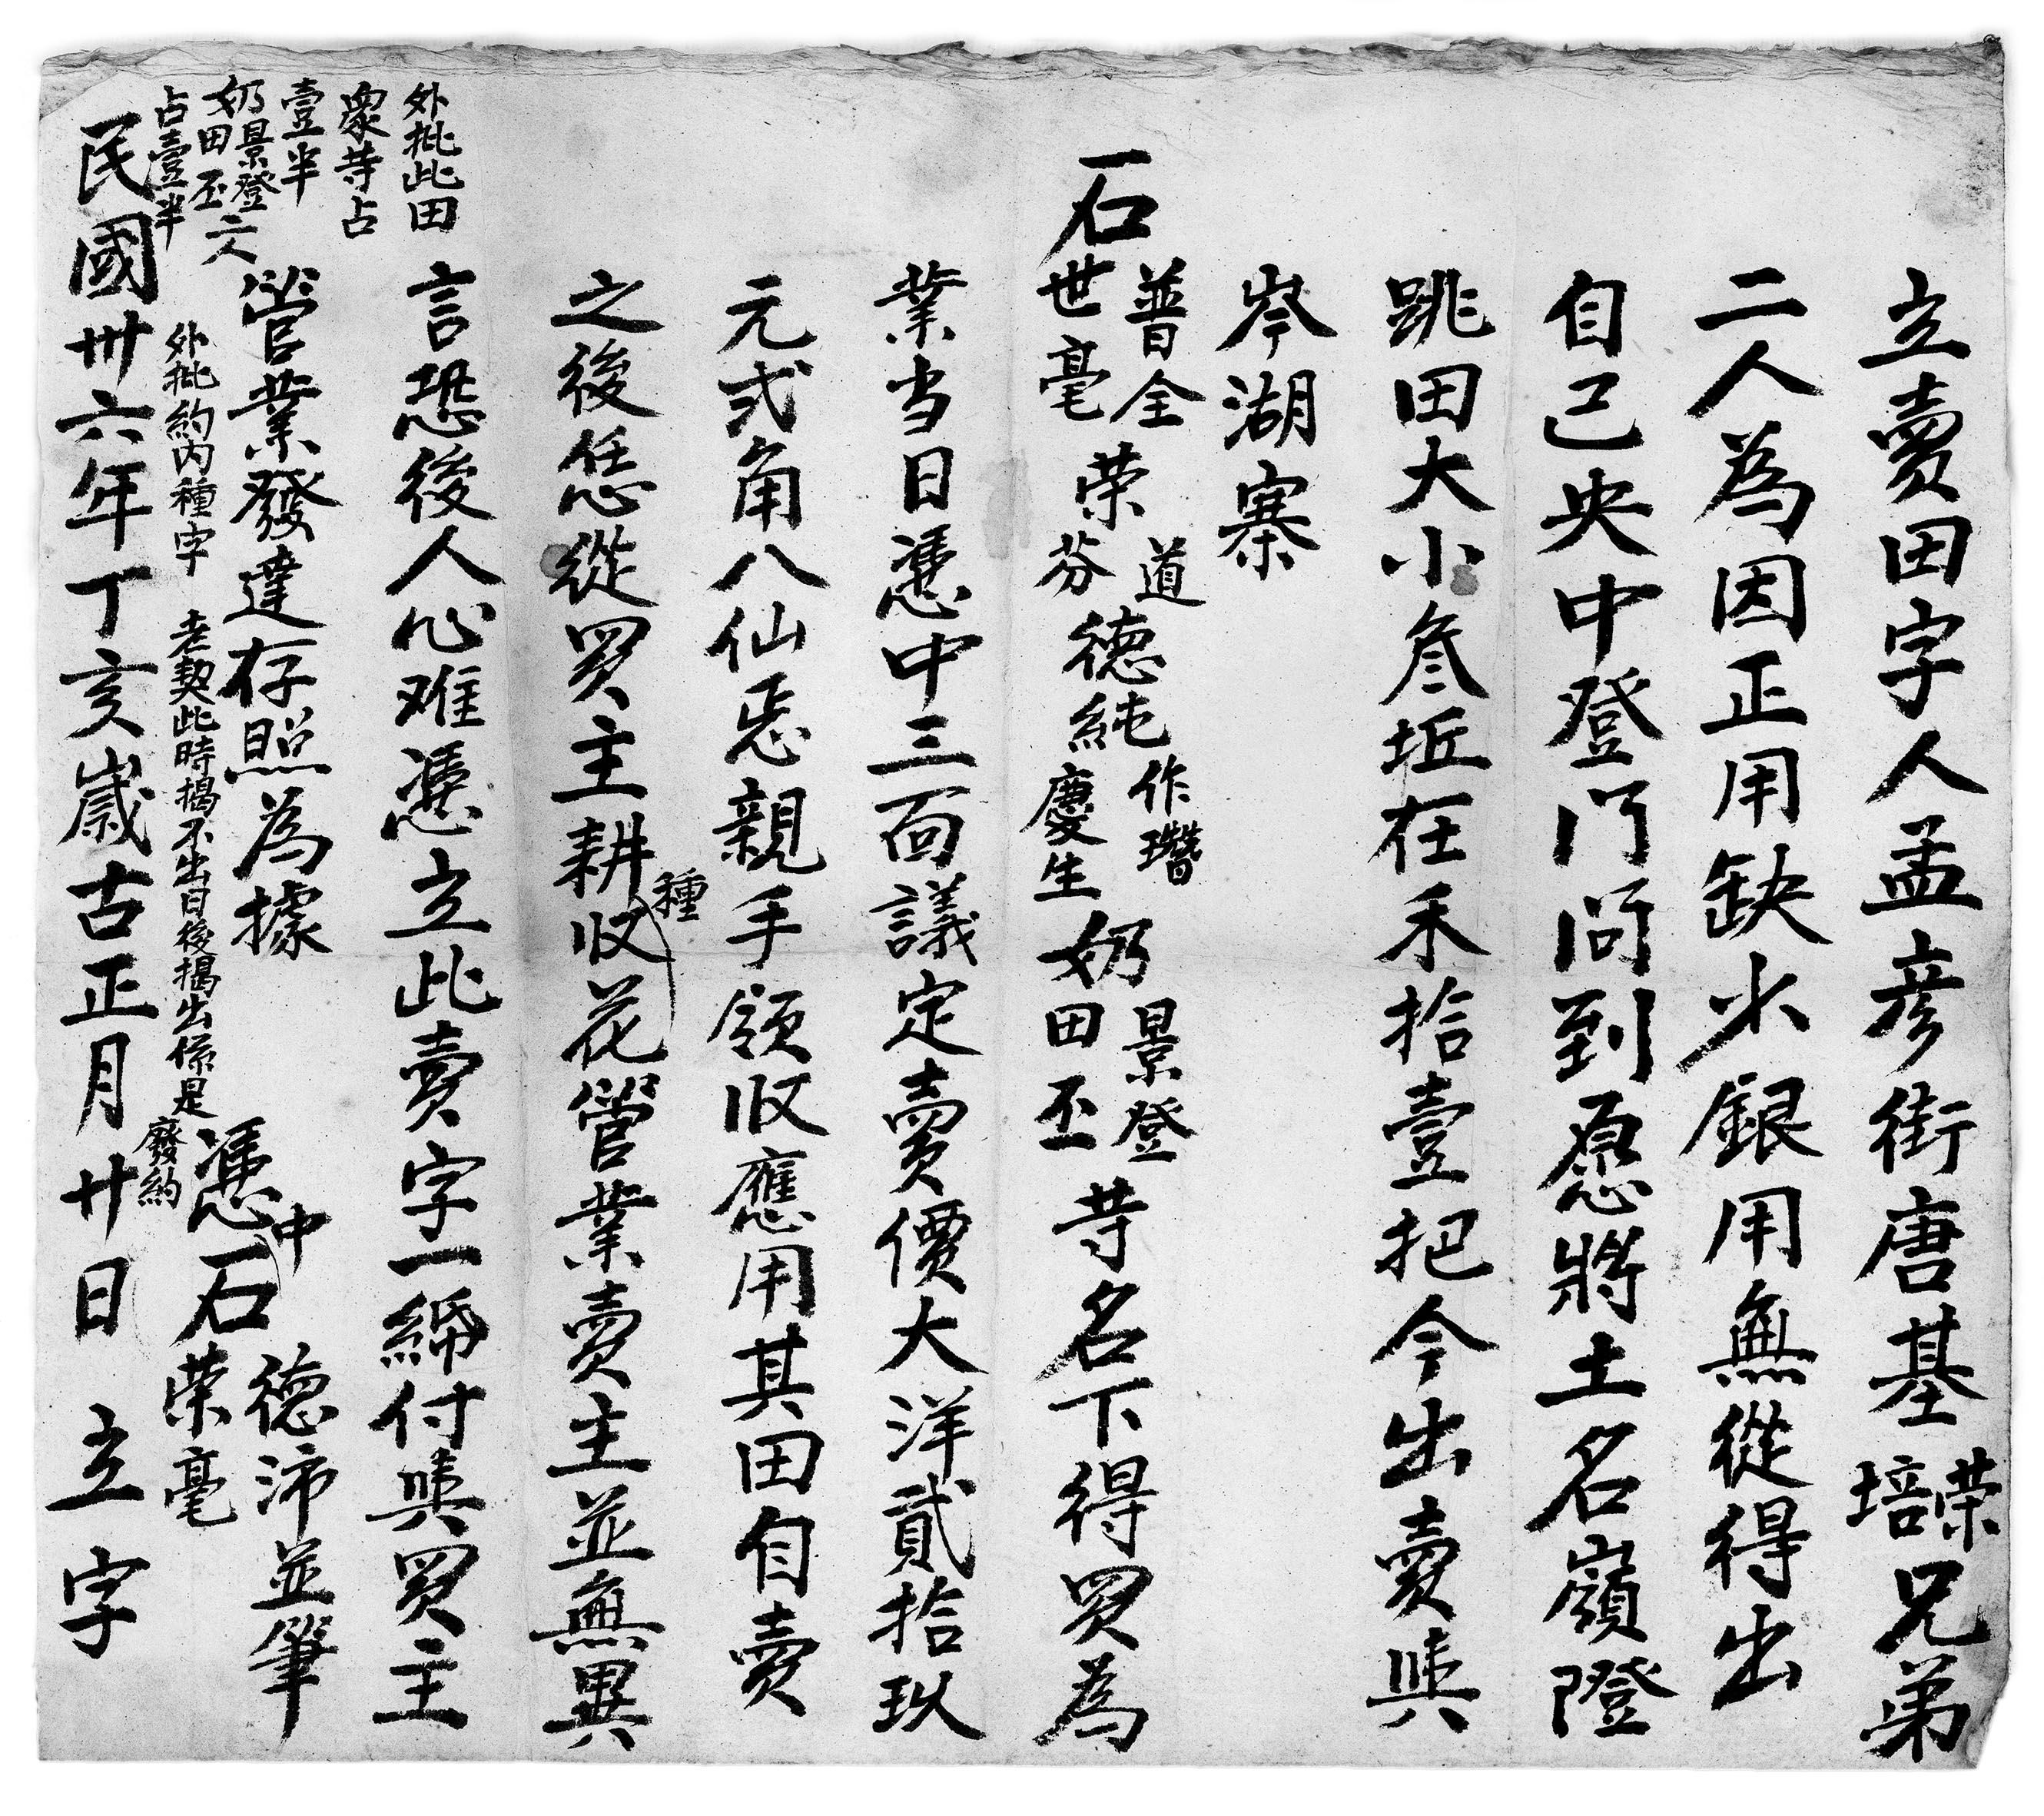 立賣田字人孟彦街唐基荣培兄弟
二人為因正用缺少銀用無從得出
自己央中登门问到愿將土名嶺隥
跳田大小叁坵在禾拾壹把今出賣與
岑湖寨
石普全世毫荣芬道德純作瓒慶生奶景登田丕等名下得買為
業当日憑中三面議定賣價大洋貳拾玖
元弍角八仙恁親手領收應用其田自賣
之後恁從買主耕種收花營業賣主並無異
言恐後人心难憑立此賣字一紙付與買主
營業發達存照為據
外批此田
眾等占
壹半
奶景登田丕二人
占壹半
外批約内種字 老契此時揭不出日後揭出係是廢約
憑中石德沛並筆荣毫
民國卅六年丁亥歲古正月廿日 立字